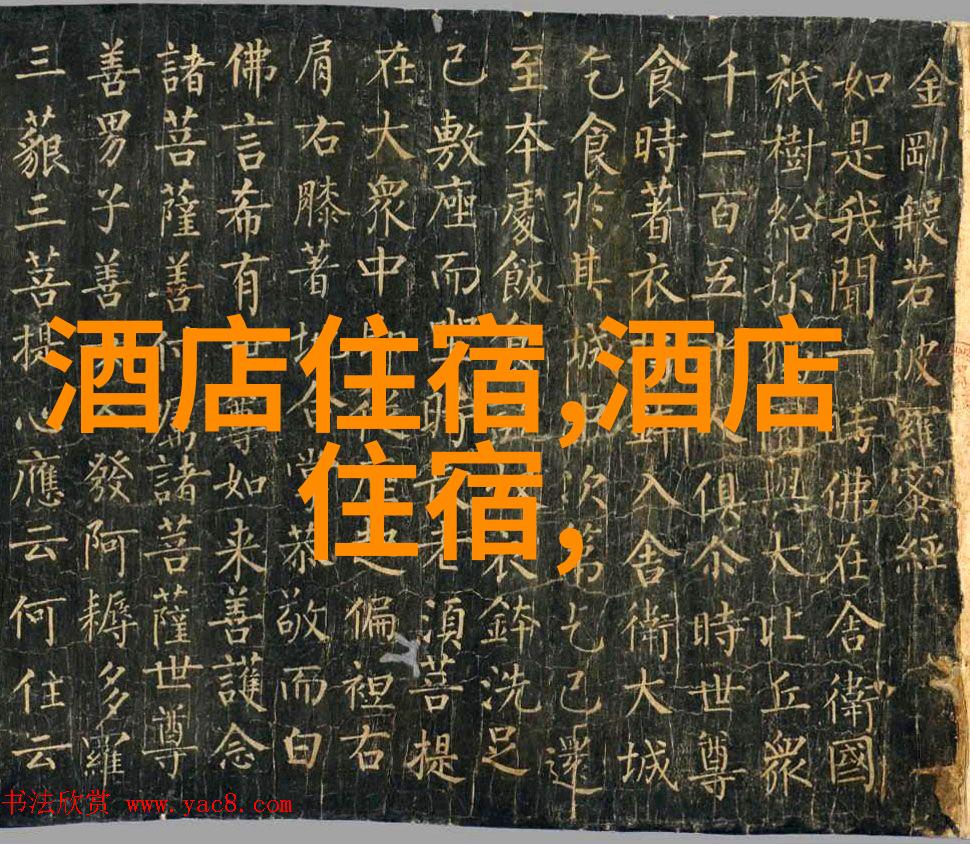 金剛般若波羅蜜經
如是我聞一時佛在舍衛國
祇樹給孤獨園與大比丘眾
千二百五十人俱尒時世尊
食時著衣持鉢入舍衛大城
乞食於其城中次第乞已還
至本處飯食衣鉢洗足
已敷座而坐時長老須菩提
在大眾中即從座起偏袒右
肩右膝著地合掌恭敬而白
佛言希有世尊如来善護念
諸菩薩善付囑諸菩薩世尊
善男子善女人發阿耨多羅
三藐三菩提心應云何住云
酒店住宿,酒店
住宿,
书法欣赏 www.yac8.com